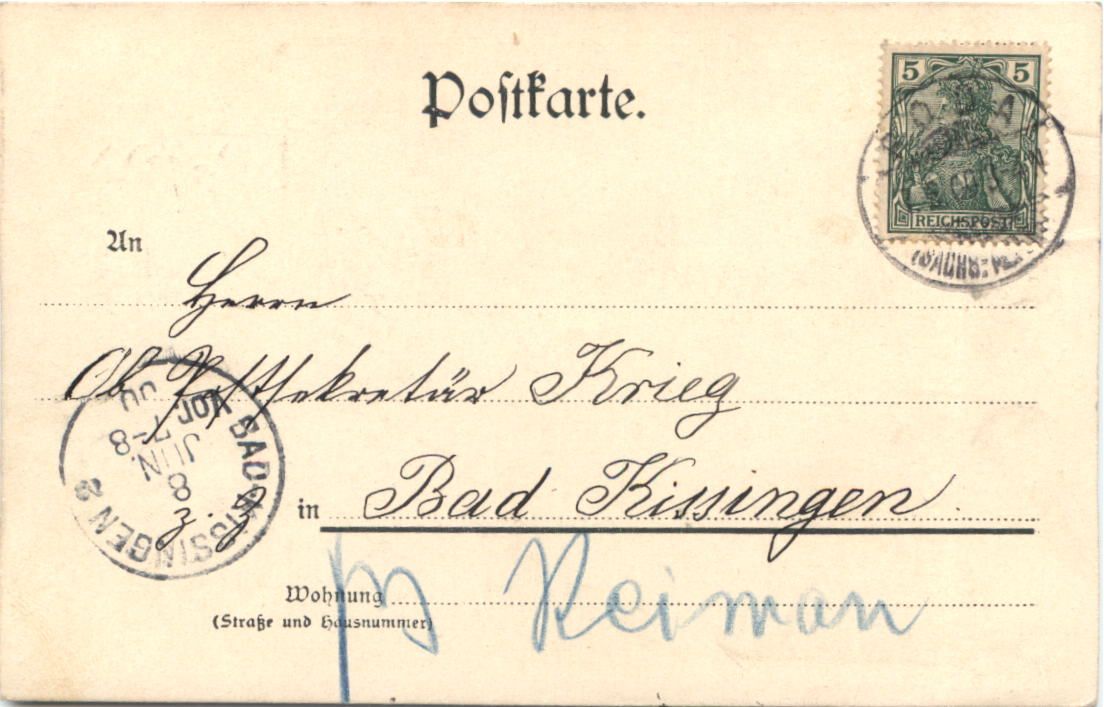 Postkarte.
5 5
REICHSPOST
An
Herrn
Ob Postsekretär Krieg
z. Z. in Bad Kissingen.
BAD-KISSINGEN 2
8
JUN.
7-8
Wohnung
(Straße und Hausnummer)
Reiman